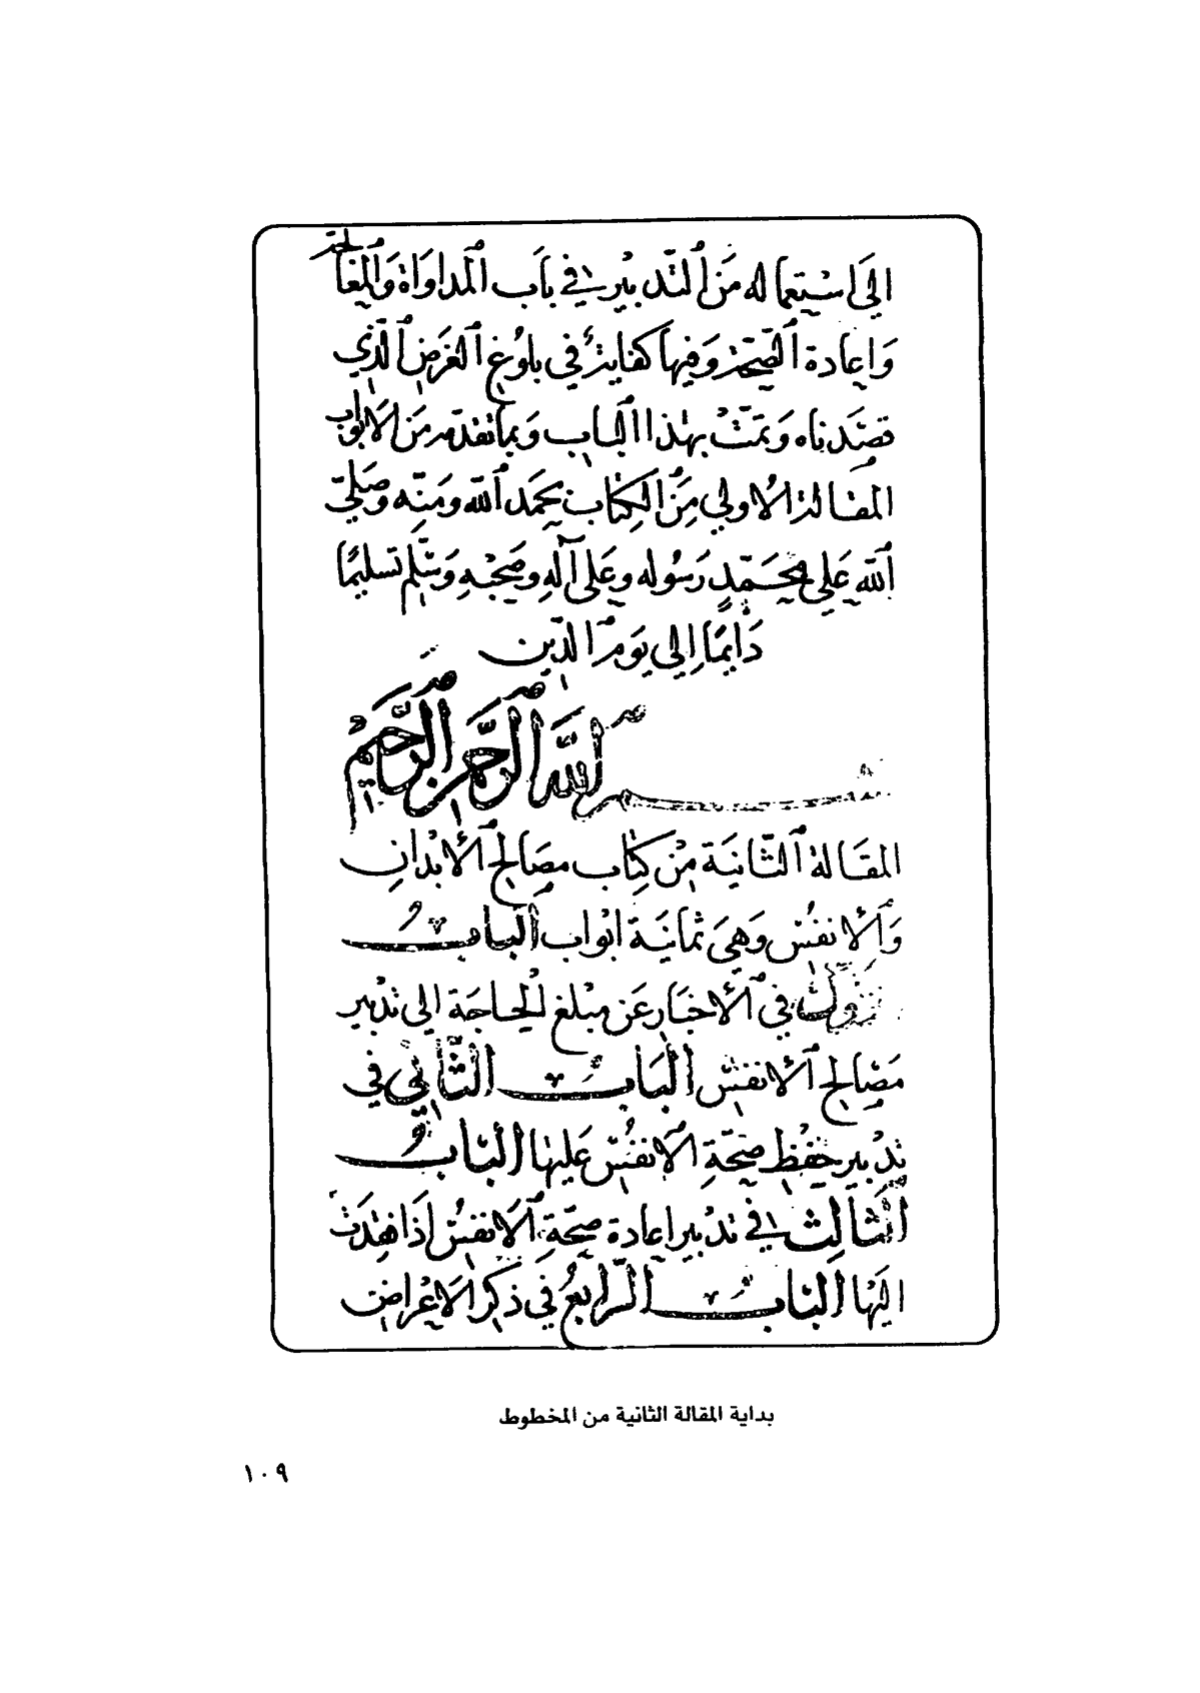 الى استعماله من التدبير في باب المداواة والمعالجة
واعادة الصحة وفيها كفاية في بلوغ الغرض الذي
قصدناه وتمت بهذا الباب وبما تقدمه من الابواب
المقالة الاولى من الكتاب بحمد الله ومنه وصلى
الله على محمد رسوله وعلى آله وصحبه وسلم تسليما
دايما الى يوم الدين
بسم الله الرحمن الرحيم
المقالة الثانية من كتاب مصالح الابدان
والانفس وهي ثمانية ابواب الباب
الاول في الاخبار عن مبلغ الحاجة الى تدبير
مصالح الانفس الباب الثاني في
تدبير حفظ صحة الانفس عليها الباب
الثالث في تدبير اعادة صحة الانفس اذا فقدت
اليها الباب الرابع في ذكر الاعراض
بداية المقالة الثانية من المخطوط
١٠٩